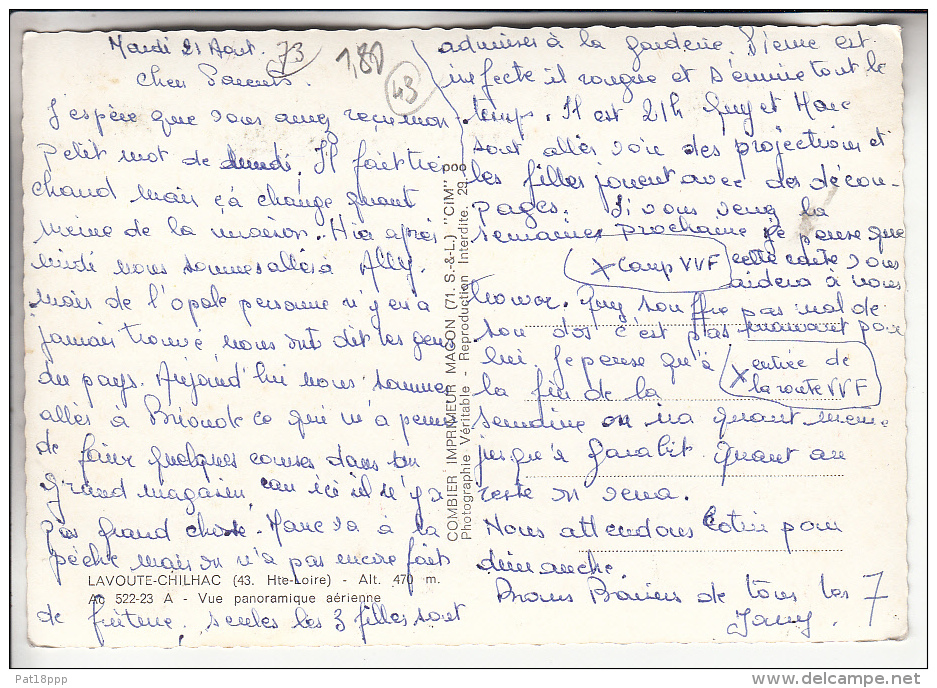 Mardi 21 Aout. 73
1,80
43
Chers Parents.
J'espère que vous avez reçu mon
petit mot de lundi. Il fait très
chaud mais çà change quant
meme de la maison. Hier après
midi nous sommes allés à Ally.
mais de l'opale personne n'y en a
jamais trouvé nous ont dit les gens
du pays. Aujourd'hui nous sommes
allés à Brioude ce qui m'a permi
de faire quelques courses dans un
grand magasin, car ici il n'y a
pas grand chose. Marc va à la
pêche mais on n'a pas encore fait
de friture, seules les 3 filles sont
admises à la garderie. Pierre est
infecte il rougne et s'ennuie tout le
temps. Il est 21h Guy et Marc
sont allés voir des projections et
les filles jouent avec des décou-
pages. Si vous venez la
semaine prochaine je pense que
cette carte vous
aidera à nous
trouver. Guy souffre pas mal de
son dos c'est pas marrant pour
lui. Je pense qu'à
la fin de la
semaine on ira quant meme
jusqu'à Garabit. Quant au
reste on verra.
Nous attendons pour
dimanche.
Bons Baisers de tous les 7
X Camp VVF
X entrée de
la route VVF
COMBIER IMPRIMEUR MACON (71. S.-&-L.) "CIM"
Photographie Véritable - Reproduction Interdite.
LAVOUTE-CHILHAC (43. Hte-Loire) - Alt. 470 m.
Ao 522-23 A - Vue panoramique aérienne
Pat18ppp
©delcampe.net